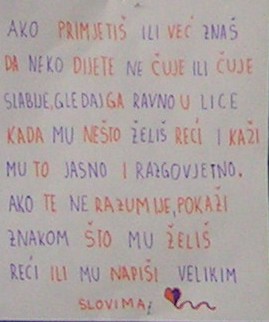 AKO PRIMJETIŠ ILI VEĆ ZNAŠ
DA NEKO DIJETE NE ČUJE ILI ČUJE
SLABIJE, GLEDAJ GA RAVNO U LICE
KADA MU NEŠTO ŽELIŠ REĆI I KAŽI
MU TO JASNO I RAZGOVJETNO.
AKO TE NE RAZUMIJE, POKAŽI
ZNAKOM ŠTO MU ŽELIŠ
REĆI ILI MU NAPIŠI VELIKIM
SLOVIMA!